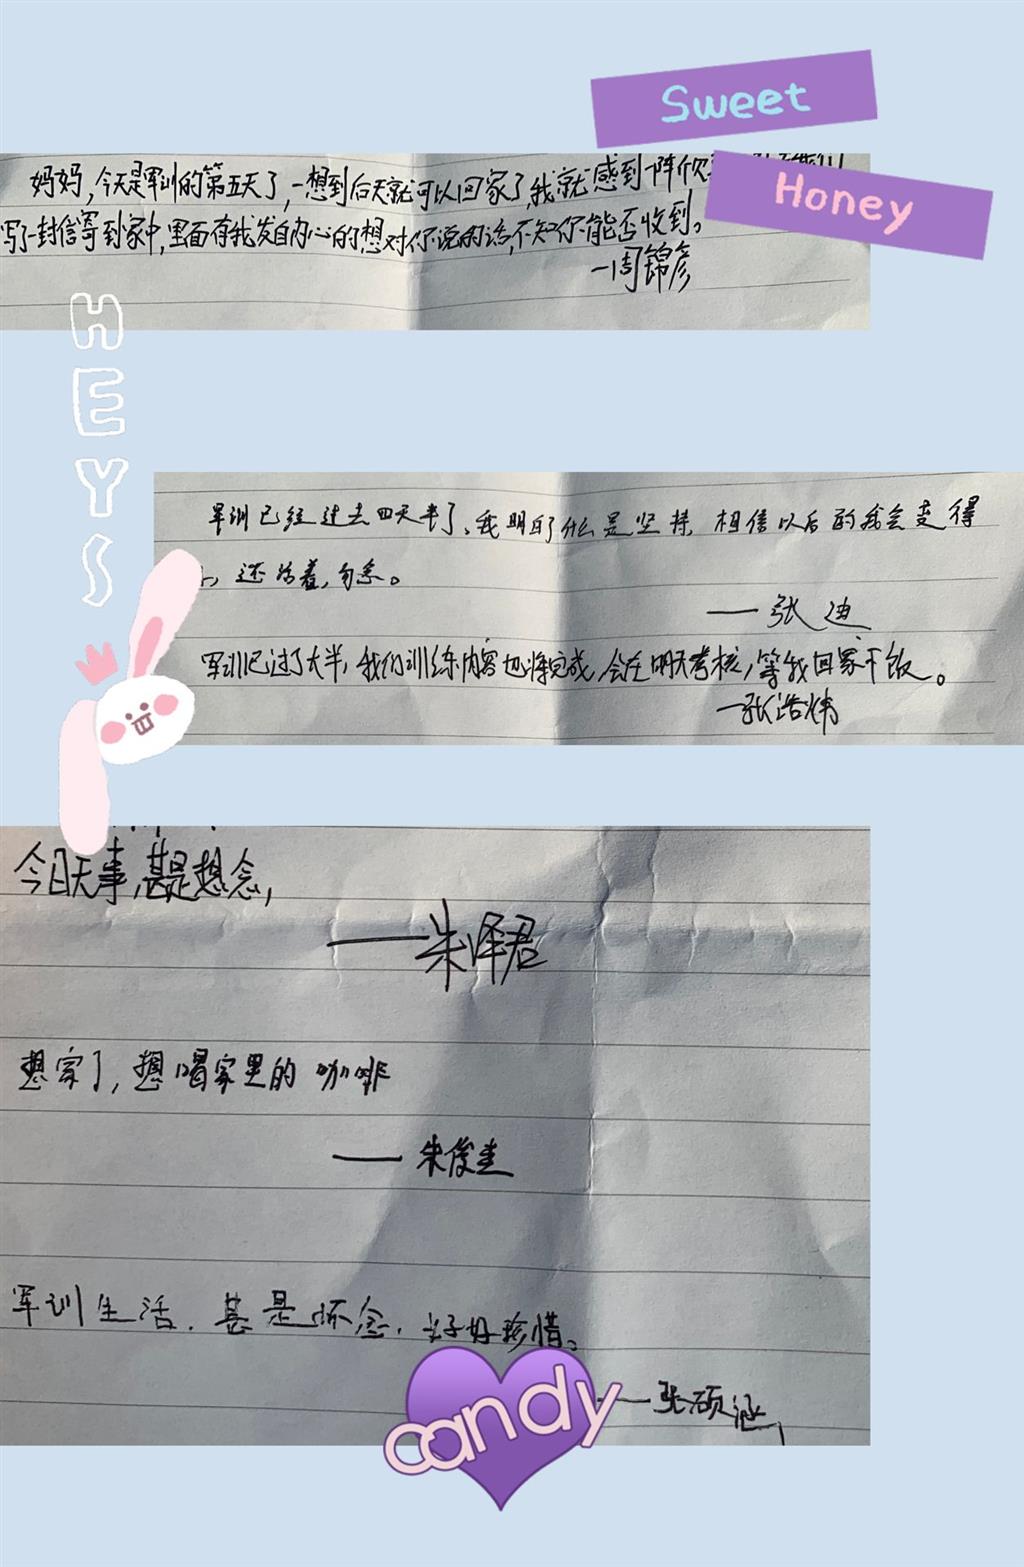 Sweet
Honey
妈妈,今天是军训的第五天了,一想到后天就可以回家了,我就感到一阵欣
写了一封信寄到家中,里面有我发自内心的想对你说的话,不知你能否收到。
—周锦彦
HEYS
军训已经过去四天半了,我明白了什么是坚持,相信以后的我会变得
,还活着,勿念。
——张迪
军训已过了大半,我们训练内容也将完成,会在明天考核,等我回家干饭。
—张浩炜
今日无事,甚是想念,
——朱泽君
想家了,想喝家里的咖啡
——朱俊圭
军训生活,甚是怀念,好好珍惜。
——张硕涵
candy